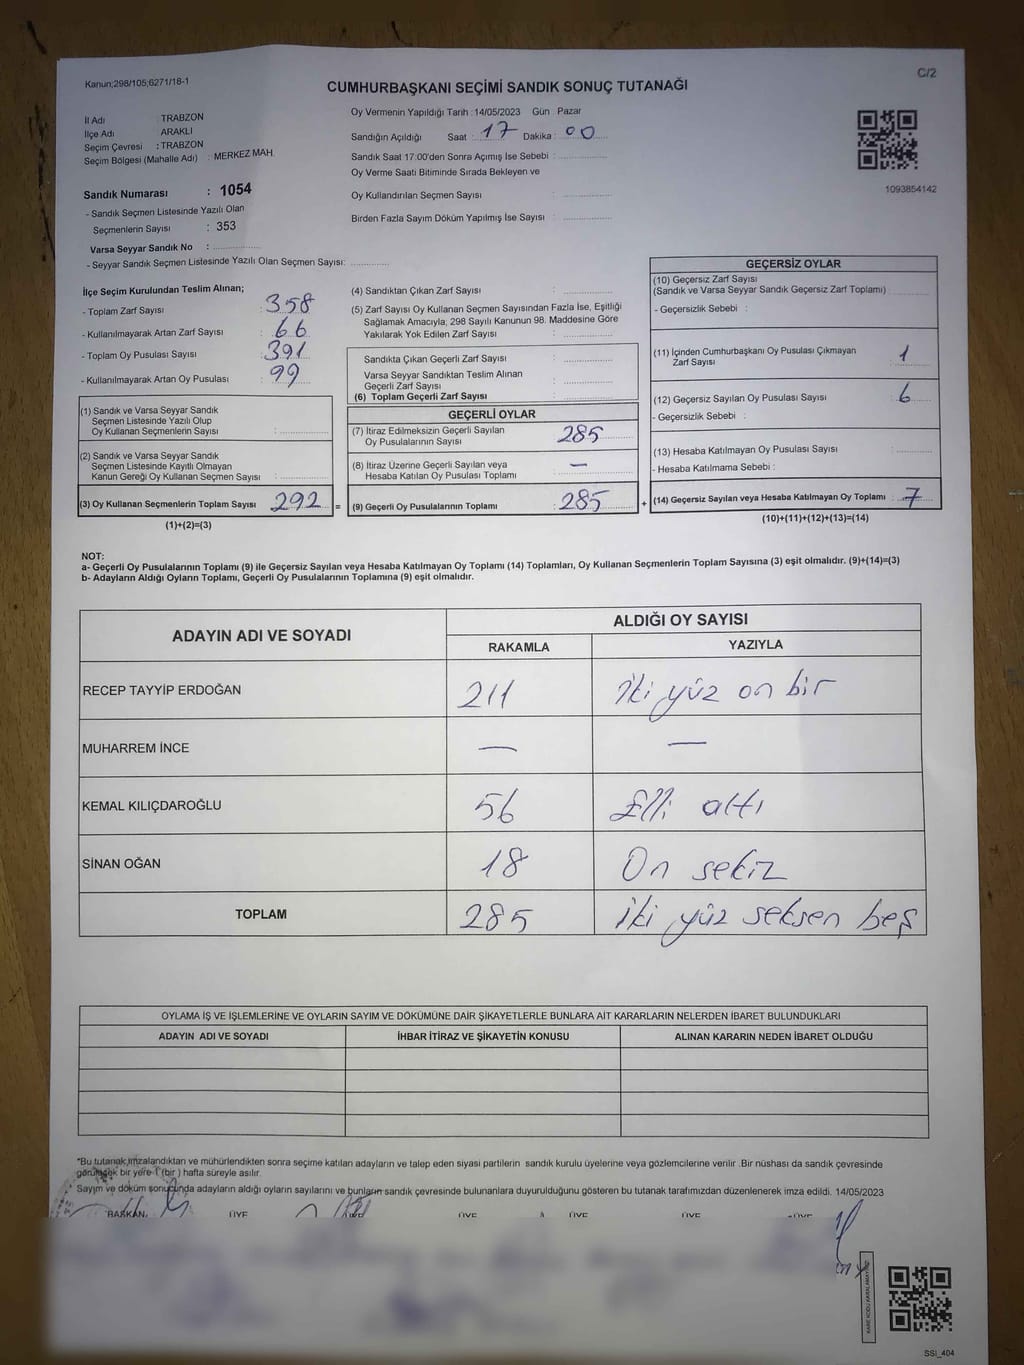 Kanun;298/105;6271/18-1
C/2
CUMHURBAŞKANI SEÇİMİ SANDIK SONUÇ TUTANAĞI
İl Adı : TRABZON
İlçe Adı : ARAKLI
Seçim Çevresi : TRABZON
Seçim Bölgesi (Mahalle Adı) : MERKEZ MAH.
Sandık Numarası : 1054
- Sandık Seçmen Listesinde Yazılı Olan
Seçmenlerin Sayısı : 353
Varsa Seyyar Sandık No :
- Seyyar Sandık Seçmen Listesinde Yazılı Olan Seçmen Sayısı:
Oy Vermenin Yapıldığı Tarih :14/05/2023 Gün Pazar
Sandığın Açıldığı Saat : 17 Dakika : 00
Sandık Saat 17:00'den Sonra Açımış İse Sebebi :
Oy Verme Saati Bitiminde Sırada Bekleyen ve
Oy Kullandırılan Seçmen Sayısı :
Birden Fazla Sayım Döküm Yapılmış İse Sayısı :
1093854142
İlçe Seçim Kurulundan Teslim Alınan;
- Toplam Zarf Sayısı : 358
- Kullanılmayarak Artan Zarf Sayısı : 66
- Toplam Oy Pusulası Sayısı : 391
- Kullanılmayarak Artan Oy Pusulası : 99
(1) Sandık ve Varsa Seyyar Sandık
Seçmen Listesinde Yazılı Olup
Oy Kullanan Seçmenlerin Sayısı :
(2) Sandık ve Varsa Seyyar Sandık
Seçmen Listesinde Kayıtlı Olmayan
Kanun Gereği Oy Kullanan Seçmen Sayısı :
(3) Oy Kullanan Seçmenlerin Toplam Sayısı : 292 =
(1)+(2)=(3)
(4) Sandıktan Çıkan Zarf Sayısı :
(5) Zarf Sayısı Oy Kullanan Seçmen Sayısından Fazla İse, Eşitliği
Sağlamak Amacıyla; 298 Sayılı Kanunun 98. Maddesine Göre
Yakılarak Yok Edilen Zarf Sayısı :
Sandıkta Çıkan Geçerli Zarf Sayısı :
Varsa Seyyar Sandıktan Teslim Alınan
Geçerli Zarf Sayısı :
(6) Toplam Geçerli Zarf Sayısı :
GEÇERLİ OYLAR
(7) İtiraz Edilmeksizin Geçerli Sayılan
Oy Pusulalarının Sayısı : 285
(8) İtiraz Üzerine Geçerli Sayılan veya
Hesaba Katılan Oy Pusulası Toplamı : —
(9) Geçerli Oy Pusulalarının Toplamı : 285 +
GEÇERSİZ OYLAR
(10) Geçersiz Zarf Sayısı
(Sandık ve Varsa Seyyar Sandık Geçersiz Zarf Toplamı)
- Geçersizlik Sebebi :
(11) İçinden Cumhurbaşkanı Oy Pusulası Çıkmayan
Zarf Sayısı : 1
(12) Geçersiz Sayılan Oy Pusulası Sayısı : 6
- Geçersizlik Sebebi :
(13) Hesaba Katılmayan Oy Pusulası Sayısı :
- Hesaba Katılmama Sebebi :
(14) Geçersiz Sayılan veya Hesaba Katılmayan Oy Toplamı : 7
(10)+(11)+(12)+(13)=(14)
NOT:
a- Geçerli Oy Pusulalarının Toplamı (9) ile Geçersiz Sayılan veya Hesaba Katılmayan Oy Toplamı (14) Toplamları, Oy Kullanan Seçmenlerin Toplam Sayısına (3) eşit olmalıdır. (9)+(14)=(3)
b- Adayların Aldığı Oyların Toplamı, Geçerli Oy Pusulalarının Toplamına (9) eşit olmalıdır.
ADAYIN ADI VE SOYADI ALDIĞI OY SAYISI
RAKAMLA YAZIYLA
RECEP TAYYİP ERDOĞAN 211 İki yüz on bir
MUHARREM İNCE — —
KEMAL KILIÇDAROĞLU 56 Elli altı
SİNAN OĞAN 18 On sekiz
TOPLAM 285 İki yüz seksen beş
OYLAMA İŞ VE İŞLEMLERİNE VE OYLARIN SAYIM VE DÖKÜMÜNE DAİR ŞİKAYETLERLE BUNLARA AİT KARARLARIN NELERDEN İBARET BULUNDUKLARI
ADAYIN ADI VE SOYADI İHBAR İTİRAZ VE ŞİKAYETİN KONUSU ALINAN KARARIN NEDEN İBARET OLDUĞU
*Bu tutanak,imzalandıktan ve mühürlendikten sonra seçime katılan adayların ve talep eden siyasi partilerin sandık kurulu üyelerine veya gözlemcilerine verilir .Bir nüshası da sandık çevresinde
görülecek bir yere 1 (bir ) hafta süreyle asılır.
* Sayım ve döküm sonucunda adayların aldığı oyların sayılarını ve bunların sandık çevresinde bulunanlara duyurulduğunu gösteren bu tutanak tarafımızdan düzenlenerek imza edildi. 14/05/2023
BAŞKAN, ÜYE ÜYE ÜYE ÜYE ÜYE ÜYE
KARE KODU KARALAMAYINIZ
SSİ_404